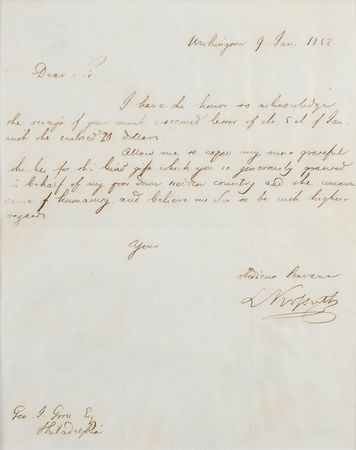 Washington 9. Jan. 1852.
Dear Sir
I have the honor to acknowledge
the receipt of your much esteemed letter of the 5th of Jan.
with the enclosed 20 dollars.
Allow me to express my most grateful
thanks for this kind gift which you so generously
in behalf of my poor down trodden country and the common
cause of humanity, and believe me Sir to be with highest
regards
Your
obedient Servant
L Kossuth
Geo J Gross Esq
Philadelphia